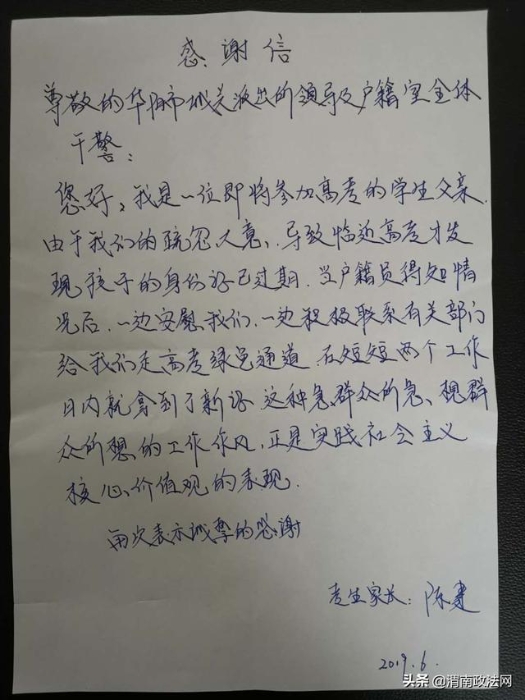 感谢信
尊敬的华阴市城关派出所领导及户籍室全体
干警：
您好，我是一位即将参加高考的学生父亲
由于我们的疏忽大意，导致临近高考才发
现孩子的身份证已过期．当户籍员得知情
况后，一边安慰我们，一边积极联系有关部门
给我们走高考绿色通道．在短短两个工作
日内就拿到了新证．这种急群众所急、想群
众所想的工作作风，正是实践社会主义
核心价值观的表现．
再次表示诚挚的感谢
考生家长：陈
2019.6.
头条@渭南政法网